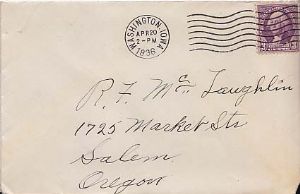 WASHINGTON, IOWA
APR 20
2-PM
1936
R. F. McLaughlin
1725 Market Str
Salem
Oregon